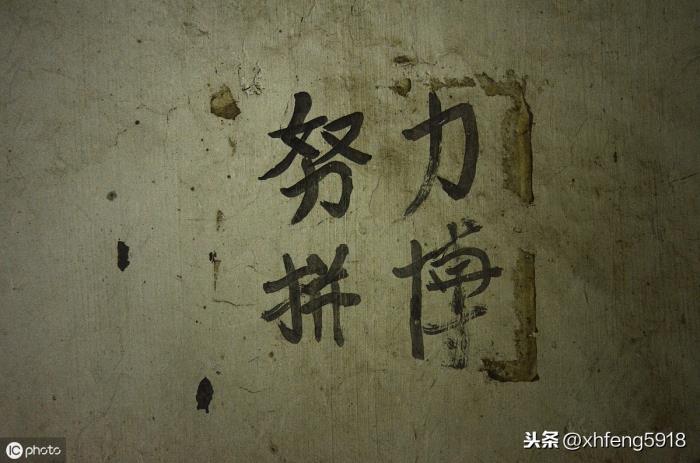 努力
拼博
头条 @xhfeng5918
IC photo